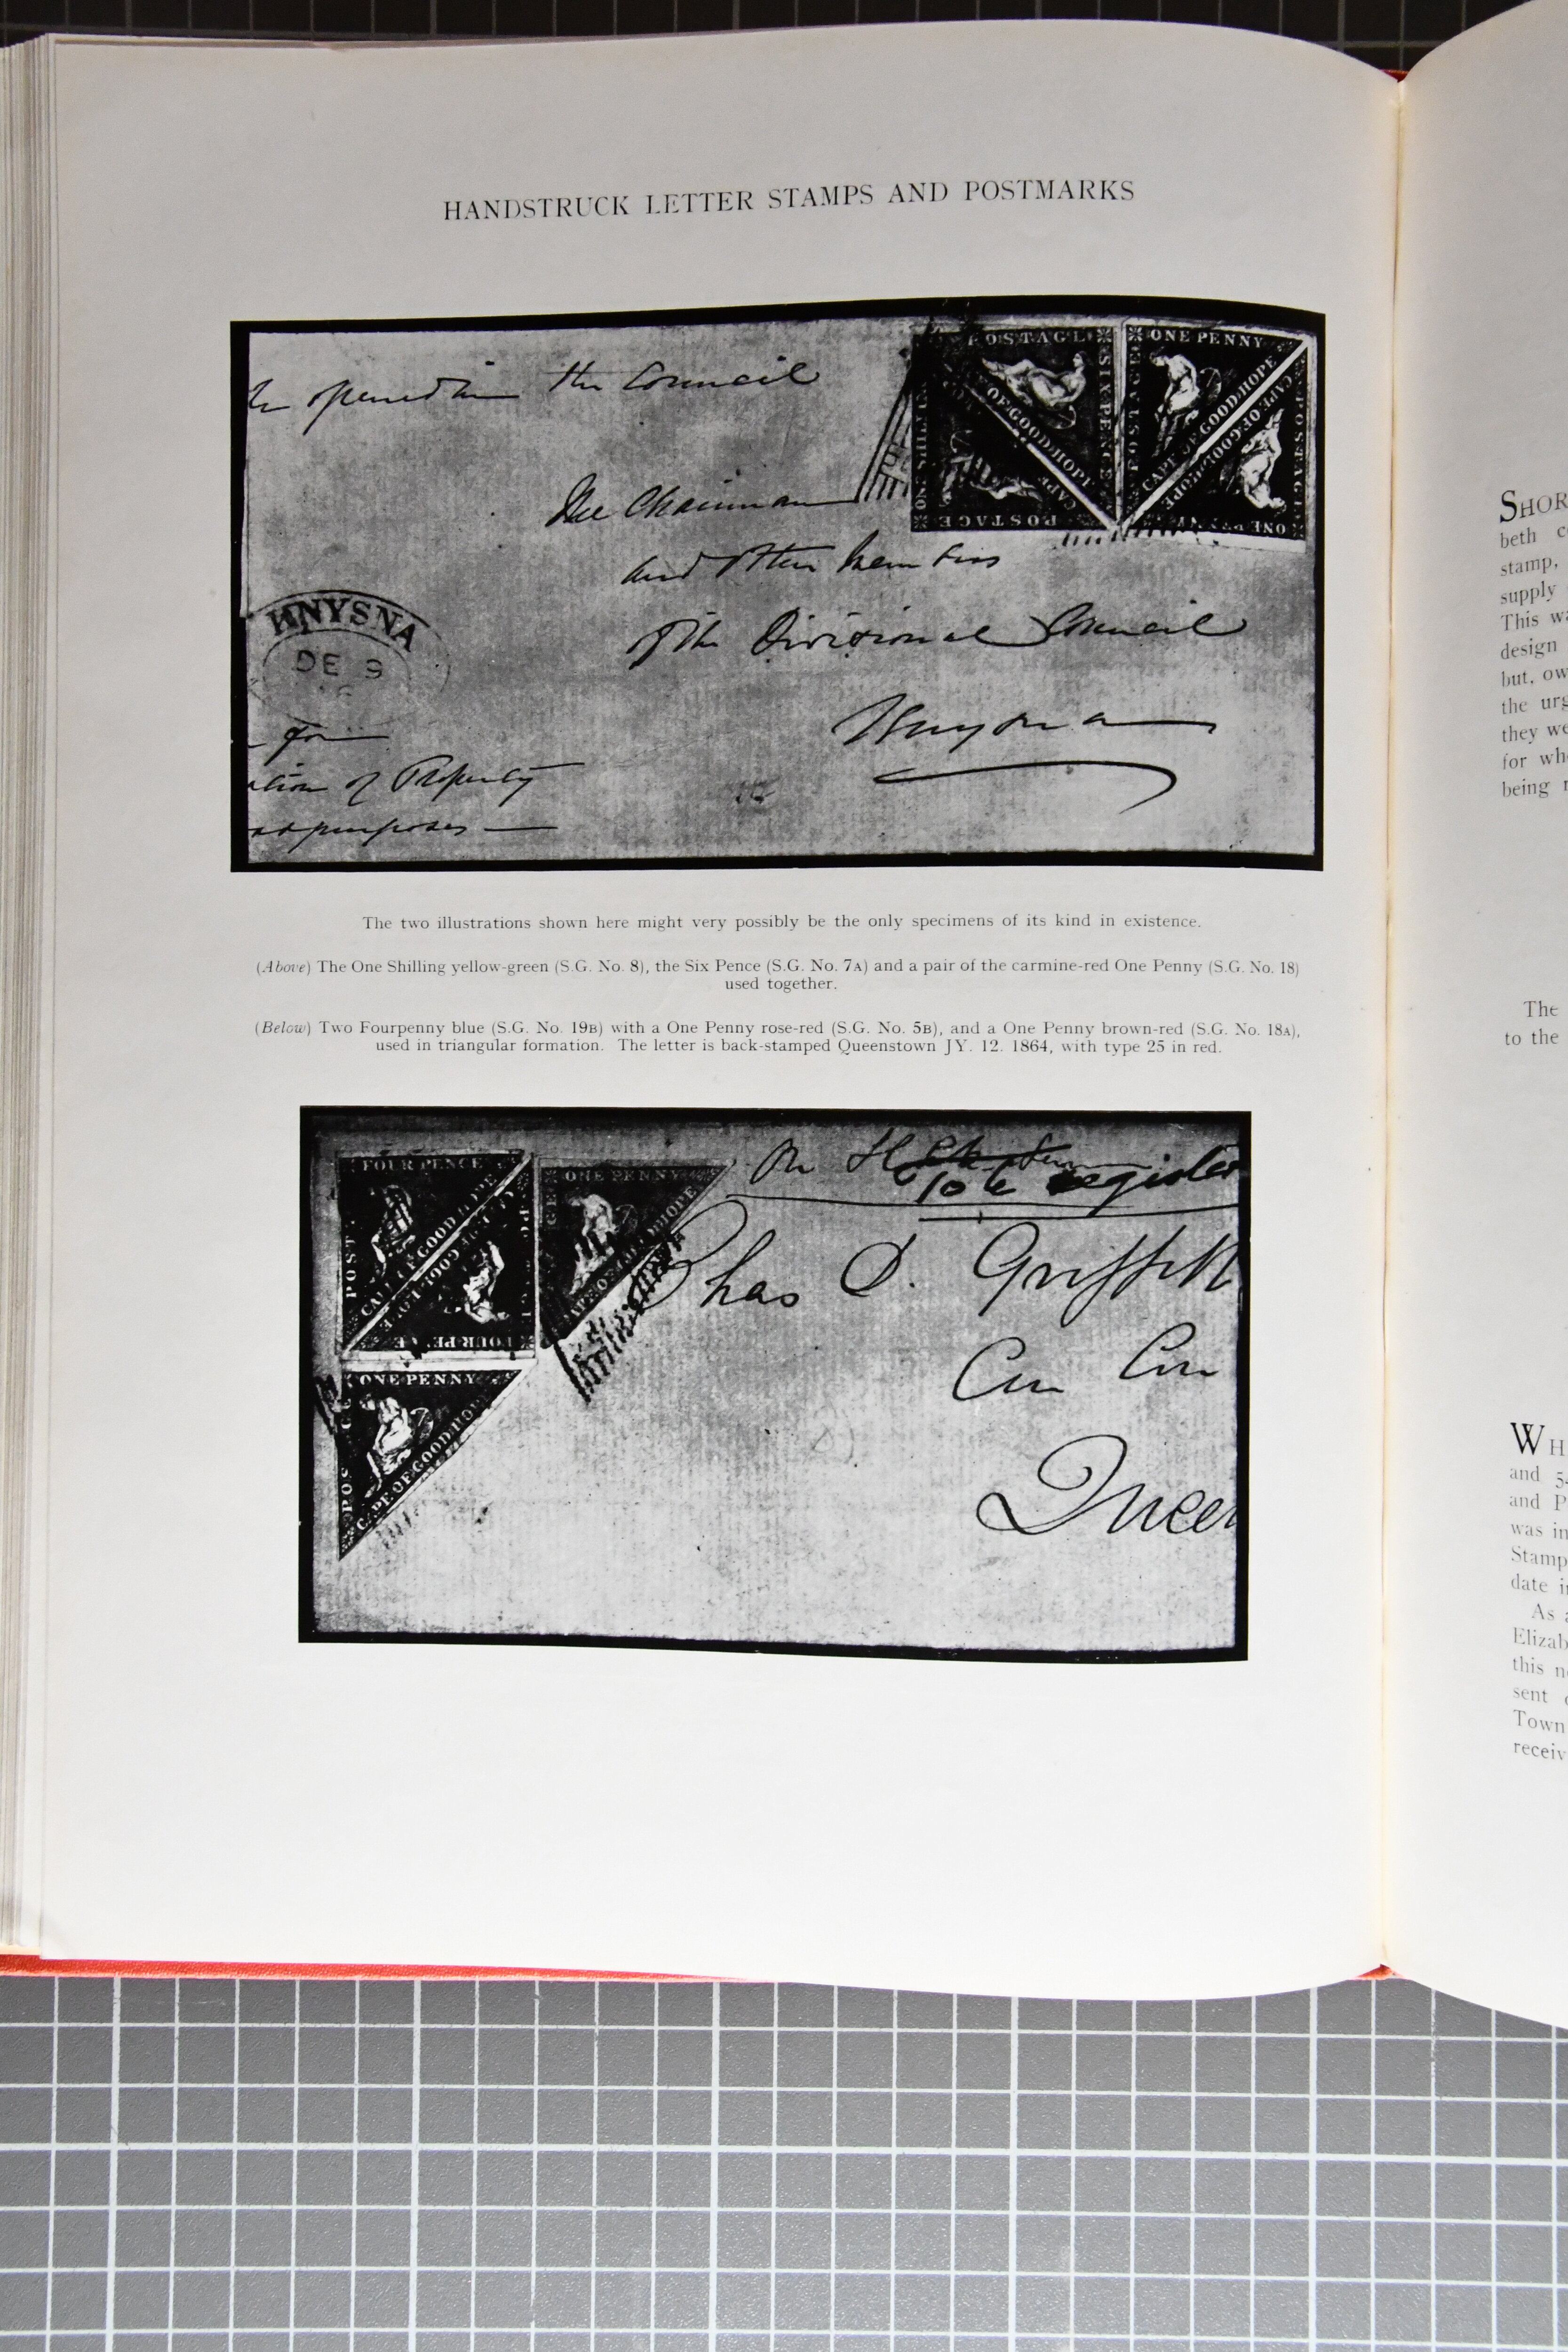 HANDSTRUCK LETTER STAMPS AND POSTMARKS
the Council
POSTAGE
SIX PENCE
OF GOOD HOPE
CAPE
POSTAGE
ONE PENNY
POSTAGE
CAPE OF GOOD HOPE
CAPE OF GOOD HOPE
POSTAGE
ONE PENNY
The Chairman
and other Members
of the Divisional Council
Knysna
KNYSNA
DE 9
for
of Property
purposes
The two illustrations shown here might very possibly be the only specimens of its kind in existence.
(Above) The One Shilling yellow-green (S.G. No. 8), the Six Pence (S.G. No. 7A) and a pair of the carmine-red One Penny (S.G. No. 18)
used together.
(Below) Two Fourpenny blue (S.G. No. 19B) with a One Penny rose-red (S.G. No. 5B), and a One Penny brown-red (S.G. No. 18A),
used in triangular formation. The letter is back-stamped Queenstown JY. 12. 1864, with type 25 in red.
FOUR PENCE
POST
CAPE OF GOOD HOPE
FOUR PE
ONE PENNY
ONE PENNY
CAPE OF GOOD HOP
On H
To be register
Chas D. Griffith
Queen
SHOR
beth c
stamp,
supply
This wa
design
but, ow
the urg
they we
for wh
being r
The
to the
WH
and 5
and P
was in
Stamp
date i
As a
Elizab
this n
sent
Town
receiv